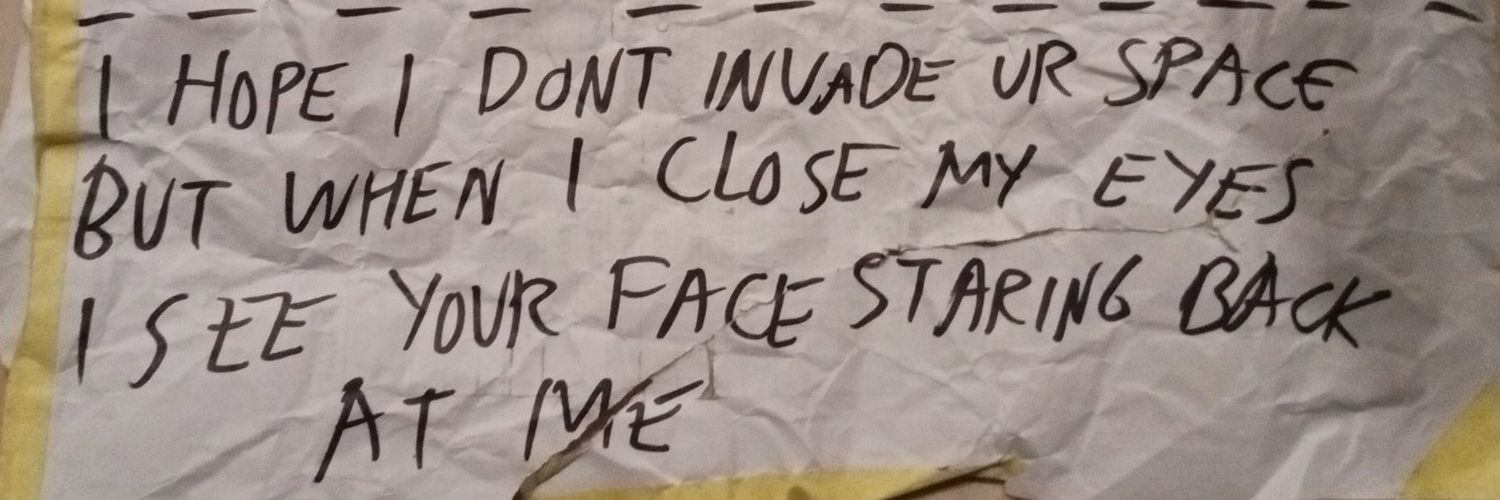 I HOPE I DONT INVADE UR SPACE
BUT WHEN I CLOSE MY EYES
I SEE YOUR FACE STARING BACK
AT ME